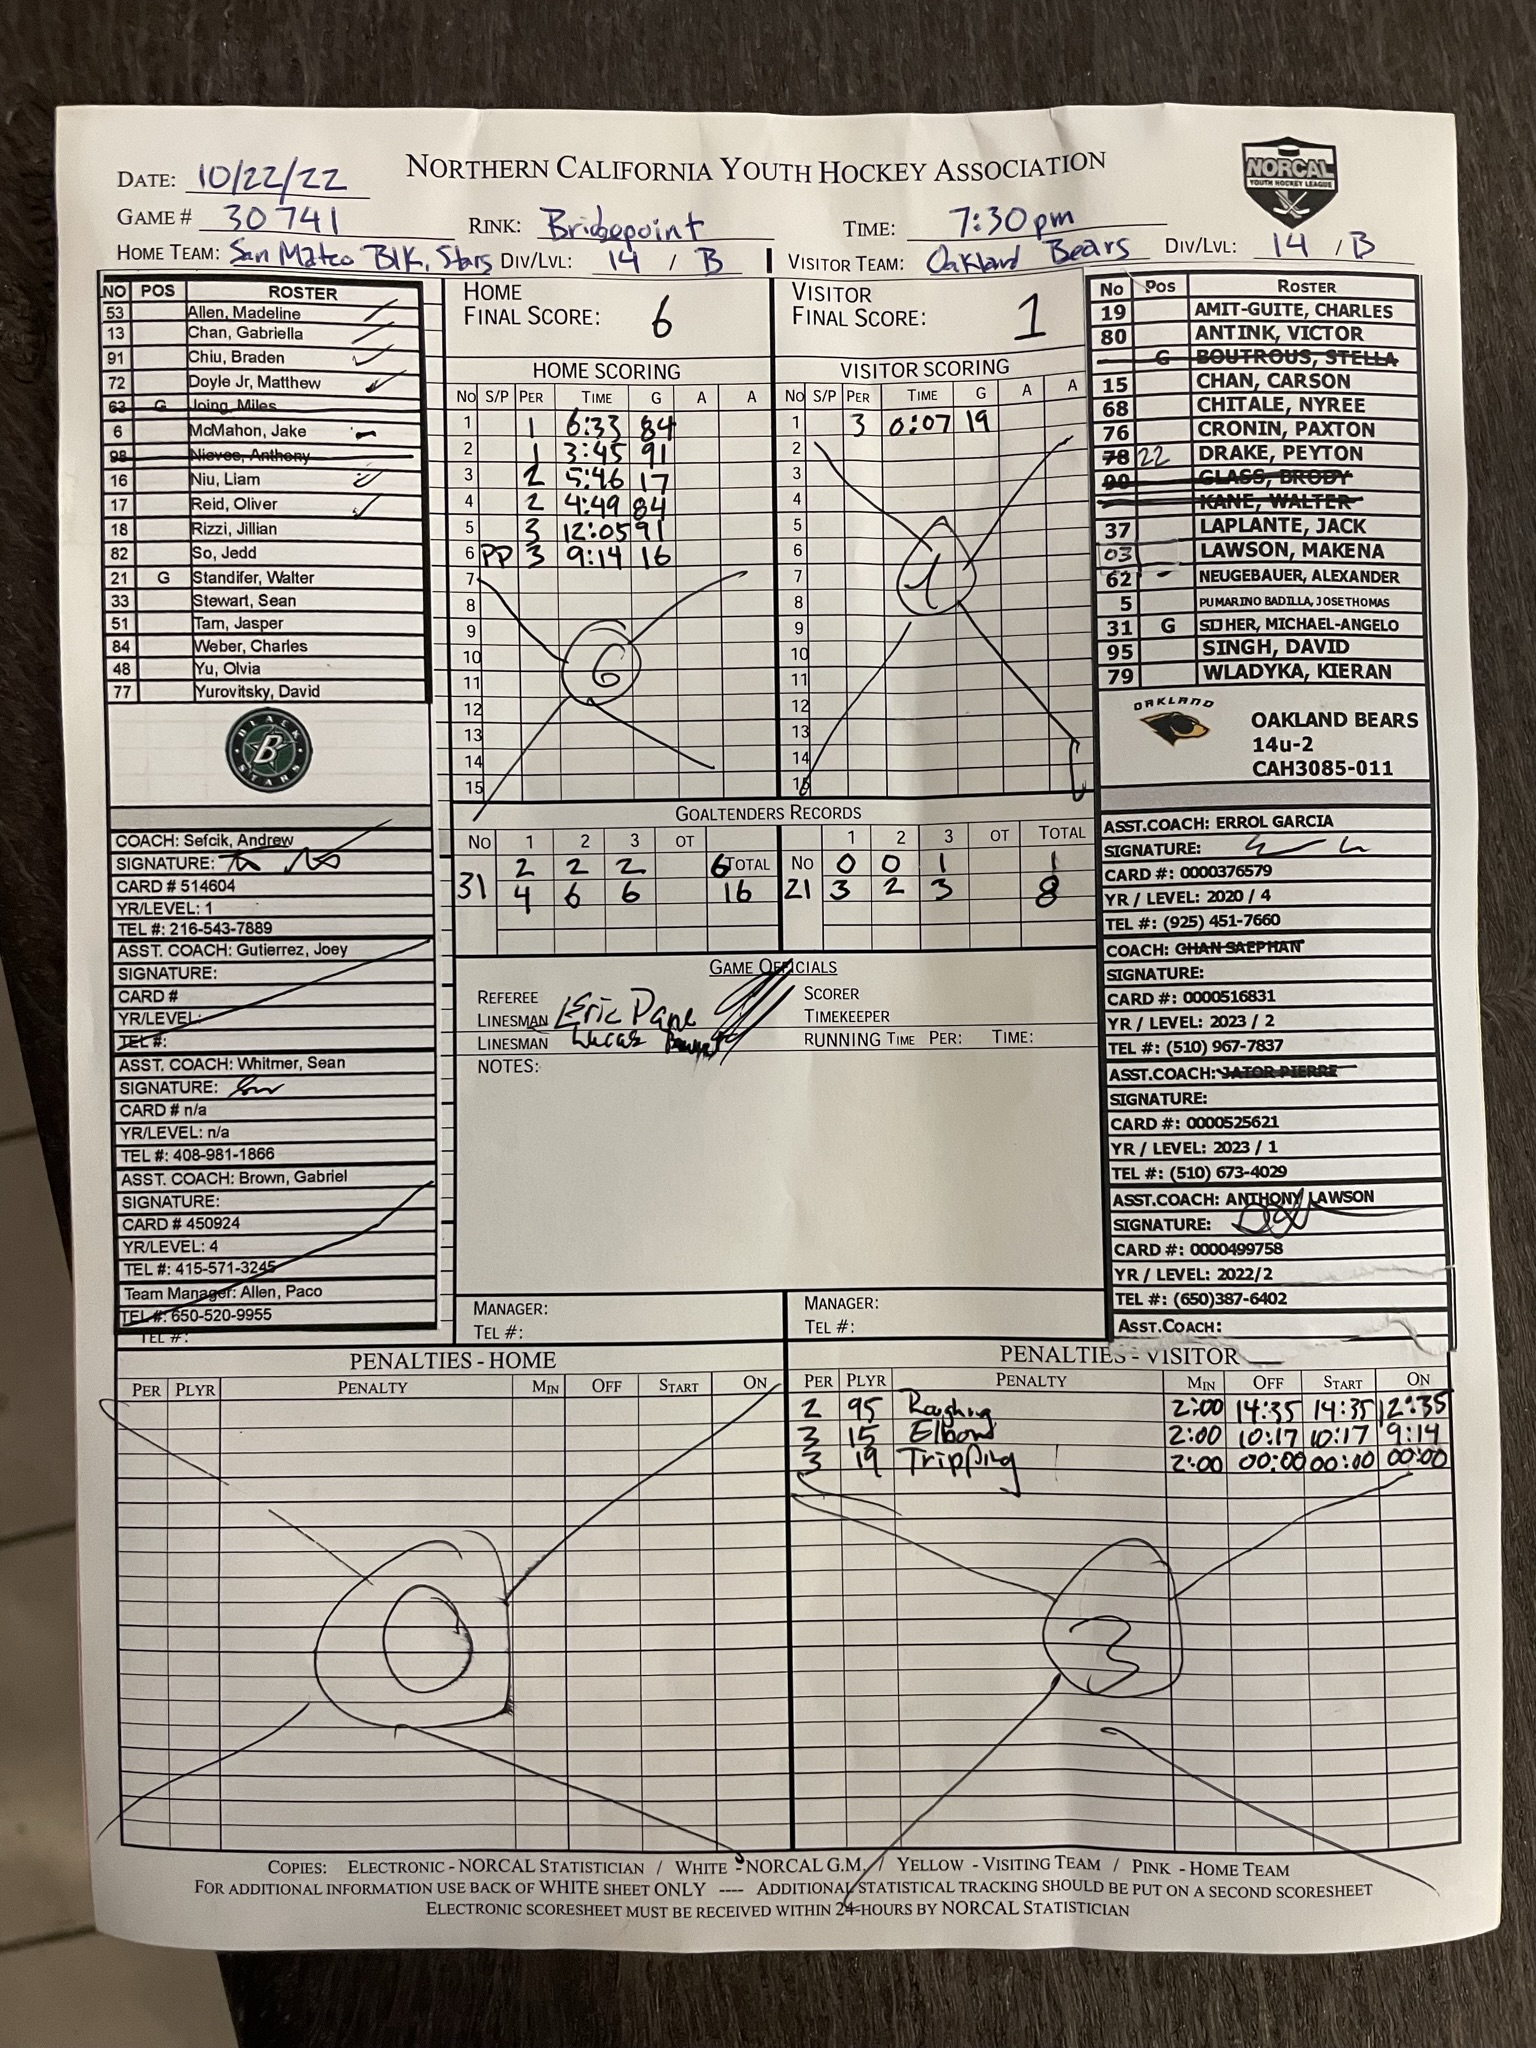 NORTHERN CALIFORNIA YOUTH HOCKEY ASSOCIATION
NORCAL
YOUTH HOCKEY LEAGUE
DATE: 10/22/22
GAME # 30741 RINK: Bridgepoint TIME: 7:30pm
HOME TEAM: San Mateo Blk. Stars DIV/LVL: 14 / B VISITOR TEAM: Oakland Bears DIV/LVL: 14 / B
NO POS ROSTER
53 Allen, Madeline
13 Chan, Gabriella
91 Chiu, Braden
72 Doyle Jr, Matthew
63 G Joing, Miles
6 McMahon, Jake
98 Nieves, Anthony
16 Niu, Liam
17 Reid, Oliver
18 Rizzi, Jillian
82 So, Jedd
21 G Standifer, Walter
33 Stewart, Sean
51 Tam, Jasper
84 Weber, Charles
48 Yu, Olvia
77 Yurovitsky, David
BLACK
B
STARS
COACH: Sefcik, Andrew
SIGNATURE:
CARD # 514604
YR/LEVEL: 1
TEL #: 216-543-7889
ASST. COACH: Gutierrez, Joey
SIGNATURE:
CARD #
YR/LEVEL:
TEL #:
ASST. COACH: Whitmer, Sean
SIGNATURE:
CARD # n/a
YR/LEVEL: n/a
TEL #: 408-981-1866
ASST. COACH: Brown, Gabriel
SIGNATURE:
CARD # 450924
YR/LEVEL: 4
TEL #: 415-571-3245
Team Manager: Allen, Paco
TEL #: 650-520-9955
TEL #:
HOME
FINAL SCORE: 6
HOME SCORING
NO S/P PER TIME G A A
1 1 6:33 84
2 1 3:45 91
3 2 5:46 17
4 2 4:49 84
5 3 12:05 91
6 PP 3 9:14 16
7
8
9
10
11
12
13
14
15
6
VISITOR
FINAL SCORE: 1
VISITOR SCORING
NO S/P PER TIME G A A
1 3 0:07 19
2
3
4
5
6
7
8
9
10
11
12
13
14
15
1
GOALTENDERS RECORDS
NO 1 2 3 OT TOTAL
31 2 2 2 6
4 6 6 16
NO 1 2 3 OT TOTAL
21 0 0 1 1
3 2 3 8
GAME OFFICIALS
REFEREE
LINESMAN Eric
LINESMAN Lucas
SCORER
TIMEKEEPER
RUNNING TIME PER: TIME:
NOTES:
MANAGER:
TEL #:
MANAGER:
TEL #:
No Pos ROSTER
19 AMIT-GUITE, CHARLES
80 ANTINK, VICTOR
G BOUTROUS, STELLA
15 CHAN, CARSON
68 CHITALE, NYREE
76 CRONIN, PAXTON
78 22 DRAKE, PEYTON
00 GLASS, BRODY
KANE, WALTER
37 LAPLANTE, JACK
03 LAWSON, MAKENA
62 NEUGEBAUER, ALEXANDER
5 PUMARINO BADILLA, JOSETHOMAS
31 G HER, MICHAEL-ANGELO
95 SINGH, DAVID
79 WLADYKA, KIERAN
OAKLAND
OAKLAND BEARS
14u-2
CAH3085-011
ASST.COACH: ERROL GARCIA
SIGNATURE:
CARD #: 0000376579
YR / LEVEL: 2020 / 4
TEL #: (925) 451-7660
COACH: CHAN SAEPHAN
SIGNATURE:
CARD #: 0000516831
YR / LEVEL: 2023 / 2
TEL #: (510) 967-7837
ASST.COACH: JATOR PIERRE
SIGNATURE:
CARD #: 0000525621
YR / LEVEL: 2023 / 1
TEL #: (510) 673-4029
ASST.COACH: ANTHONY LAWSON
SIGNATURE:
CARD #: 0000499758
YR / LEVEL: 2022/2
TEL #: (650)387-6402
ASST.COACH:
PENALTIES - HOME
PER PLYR PENALTY MIN OFF START ON
0
PENALTIES - VISITOR
PER PLYR PENALTY MIN OFF START ON
2 95 Roughing 2:00 14:35 14:35 12:35
3 15 Elbow 2:00 10:17 10:17 9:14
3 19 Tripping 2:00 00:00 00:00 00:00
3
COPIES: ELECTRONIC - NORCAL STATISTICIAN / WHITE - NORCAL G.M. / YELLOW - VISITING TEAM / PINK - HOME TEAM
FOR ADDITIONAL INFORMATION USE BACK OF WHITE SHEET ONLY ---- ADDITIONAL STATISTICAL TRACKING SHOULD BE PUT ON A SECOND SCORESHEET
ELECTRONIC SCORESHEET MUST BE RECEIVED WITHIN 24-HOURS BY NORCAL STATISTICIAN